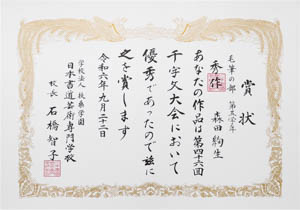 賞状
毛筆の部 第五学年
秀作 森田絢生
あなたの作品は第四十六回
千字文大会において
優秀であったので茲に
之を賞します
令和六年九月二十二日
学校法人 扶桑学園
日本書道芸術専門学校
校長 石橋智子